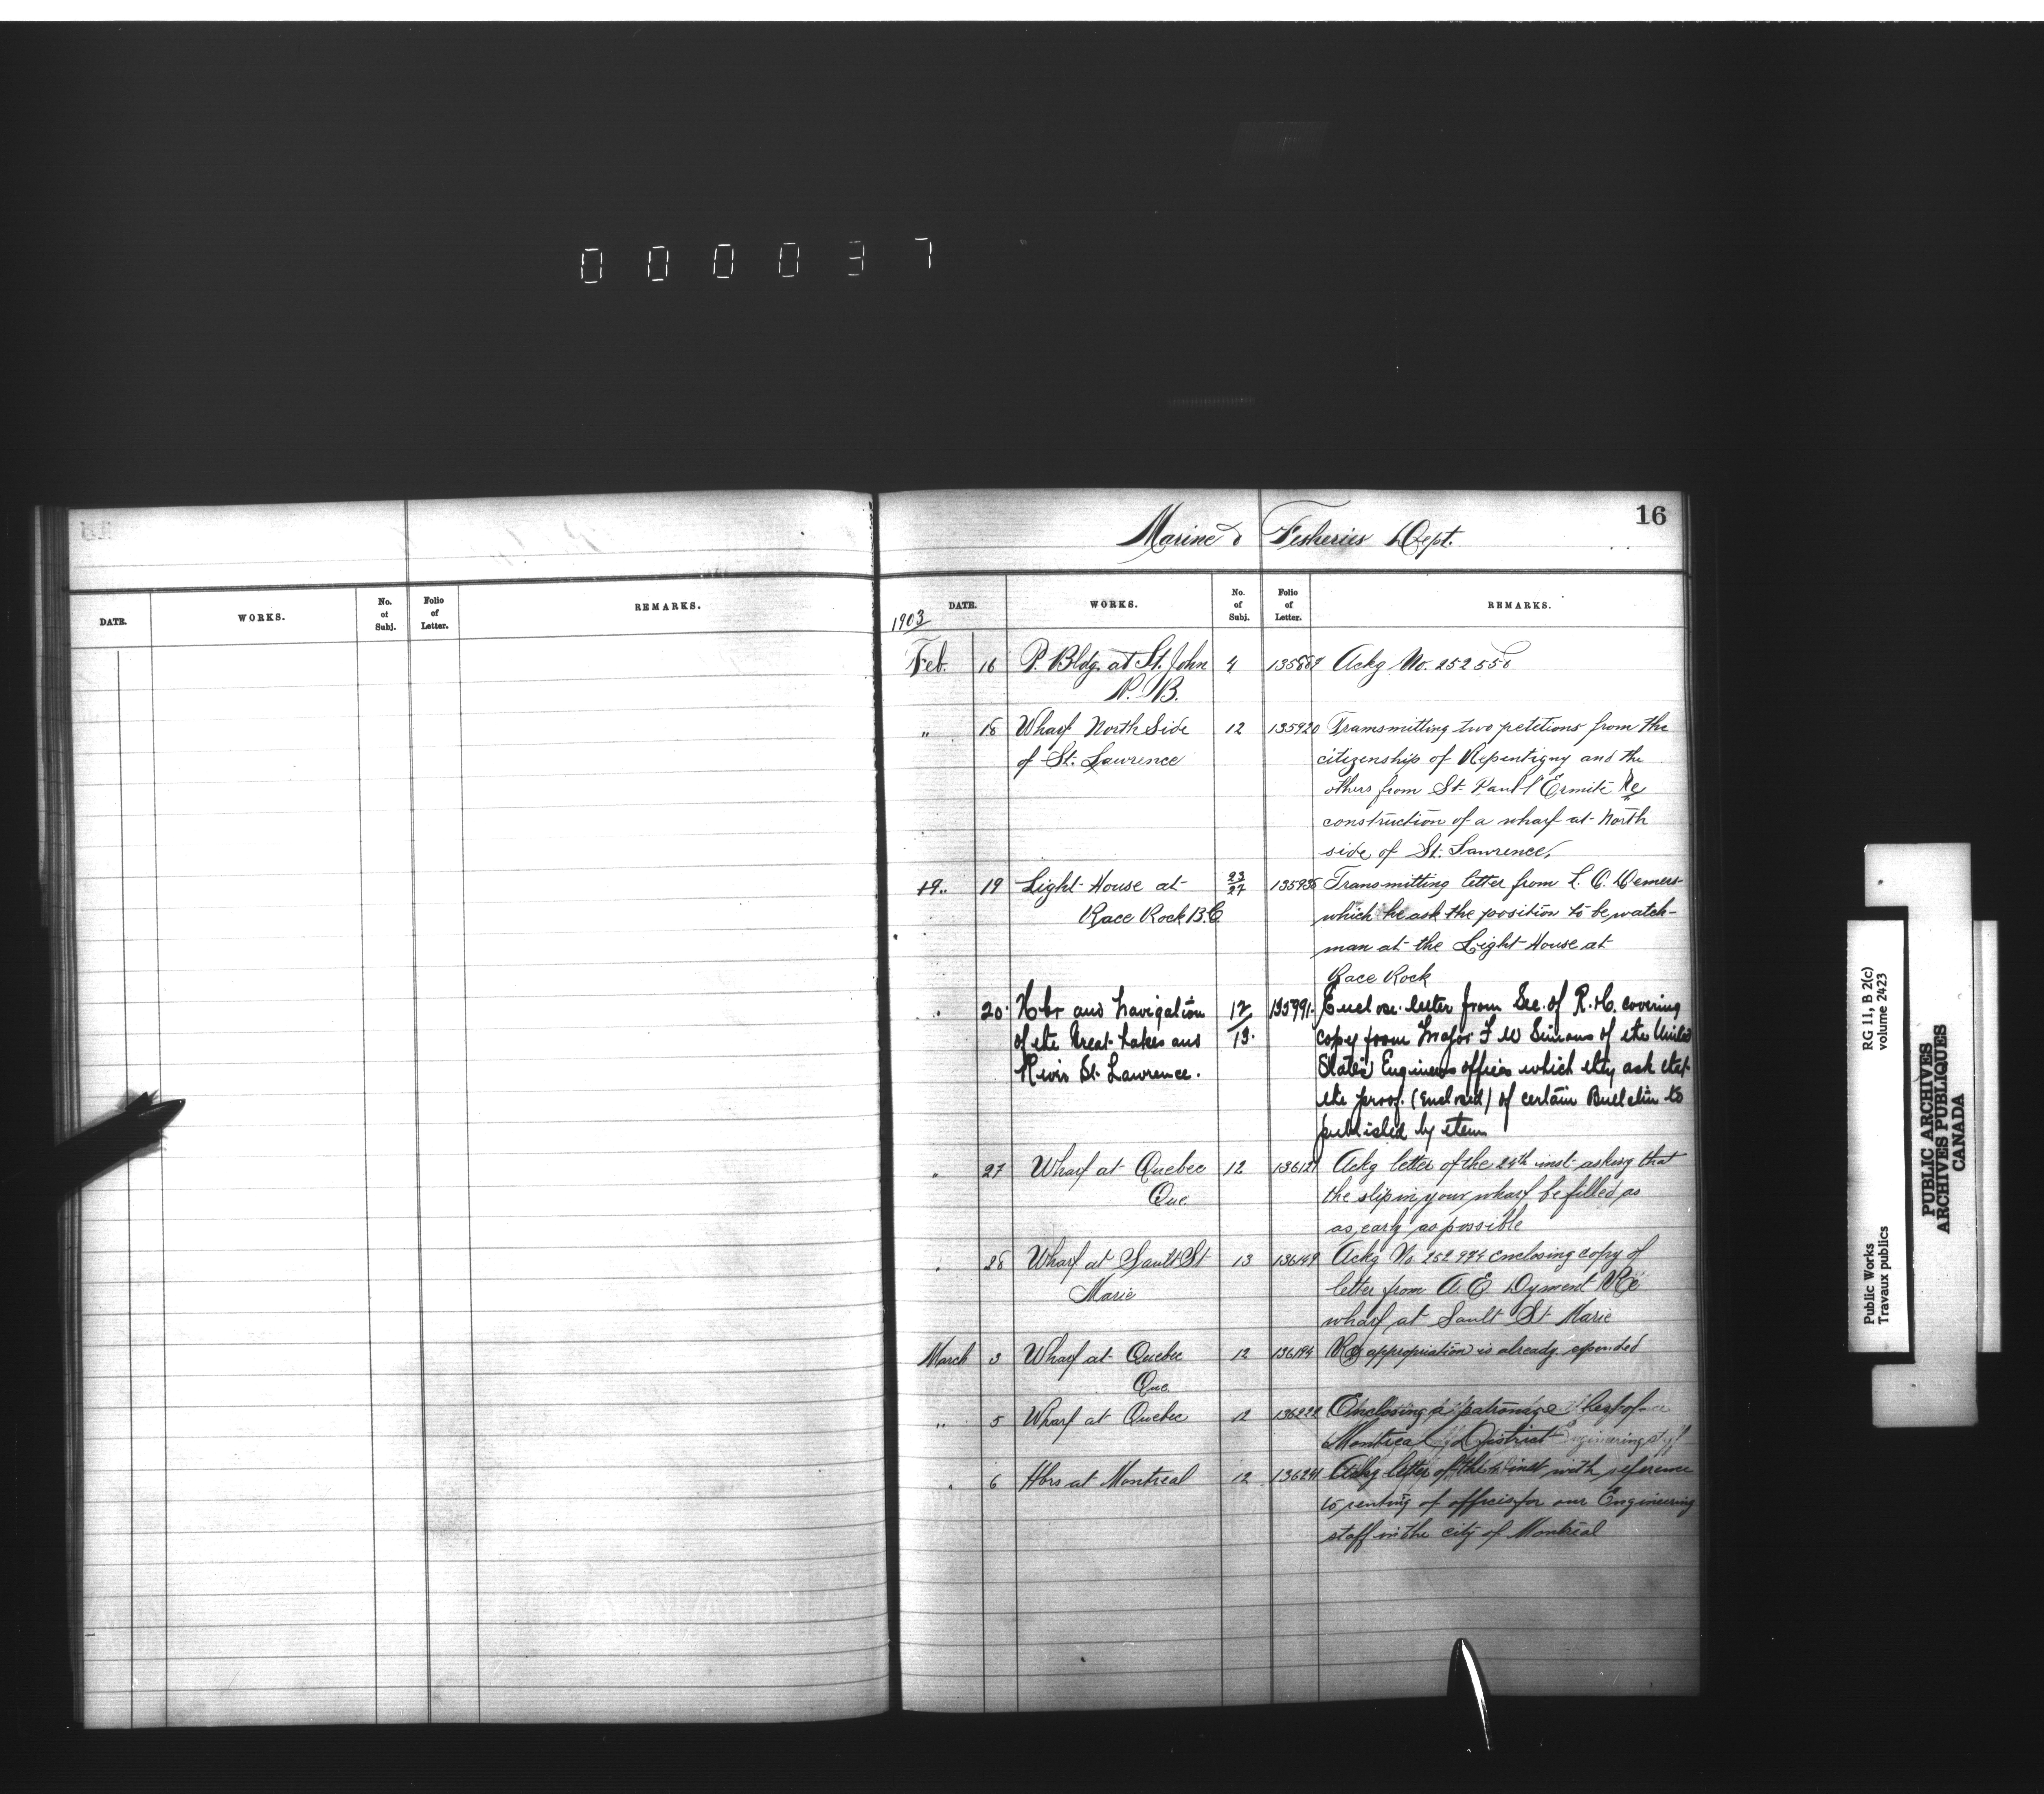 0 0 0 0 3 7
16
Marine & Fisheries Dept.
DATE. WORKS. No. of Subj. Folio of Letter. REMARKS.
1903 DATE. WORKS. No. of Subj. Folio of Letter. REMARKS.
Feb. 16 P. Bldg. at St. John 4 Ackg No. 252558
N. B.
" 18 Wharf North Side 12 135920 Transmitting two petitions from the
of St. Lawrence citizenship of Repentigny and the
others from St. Paul l'Ermite Re
construction of a wharf at North
side of St. Lawrence,
19 Light House at 23/27 135936 Transmitting letter from L. C. Demers
Race Rock B.C which he ask the position to be watch-
man at the Light House at
Race Rock
" 20 Hbr and Navigation 12/13. 135991 Enclose letter from Sec. of R. & C. covering
of the Great Lakes and copy from Major F W Simons of the United
River St. Lawrence. States Engineers offices which they ask that
the proof (enclosed) of certain Bulletin to
published by them
" 27 Wharf at Quebec 12 13612 Ackg letter of the 24th inst asking that
Que. the slip in your wharf be filled as
as early as possible
" 28 Wharf at Sault St 13 136149 Ackg No. 252974 enclosing copy of
Marie letter from A. E. Dyment Re
wharf at Sault St Marie
March 3 Wharf at Quebec 12 136194 Re appropriation is already expended
Que.
" 5 Wharf at Quebec 12 136222 Enclosing a patronage list of
Montreal District Engineering staff
" 6 Hbrs at Montreal 12 136241 Ackg letter of the inst with reference
to renting of offices for our Engineering
staff in the city of Montreal
Public Works
Travaux publics
RG 11, B 2(c)
volume 2423
PUBLIC ARCHIVES
ARCHIVES PUBLIQUES
CANADA